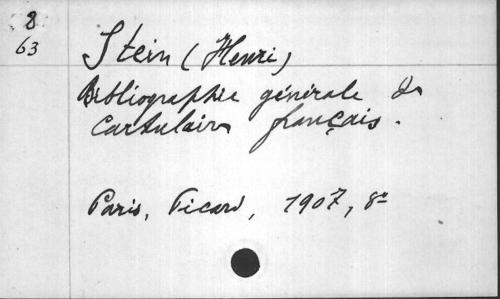 8
63
Stein (Henri)
Bibliographie générale des
Cartulaires français.
Paris, Picard, 1907, 8º